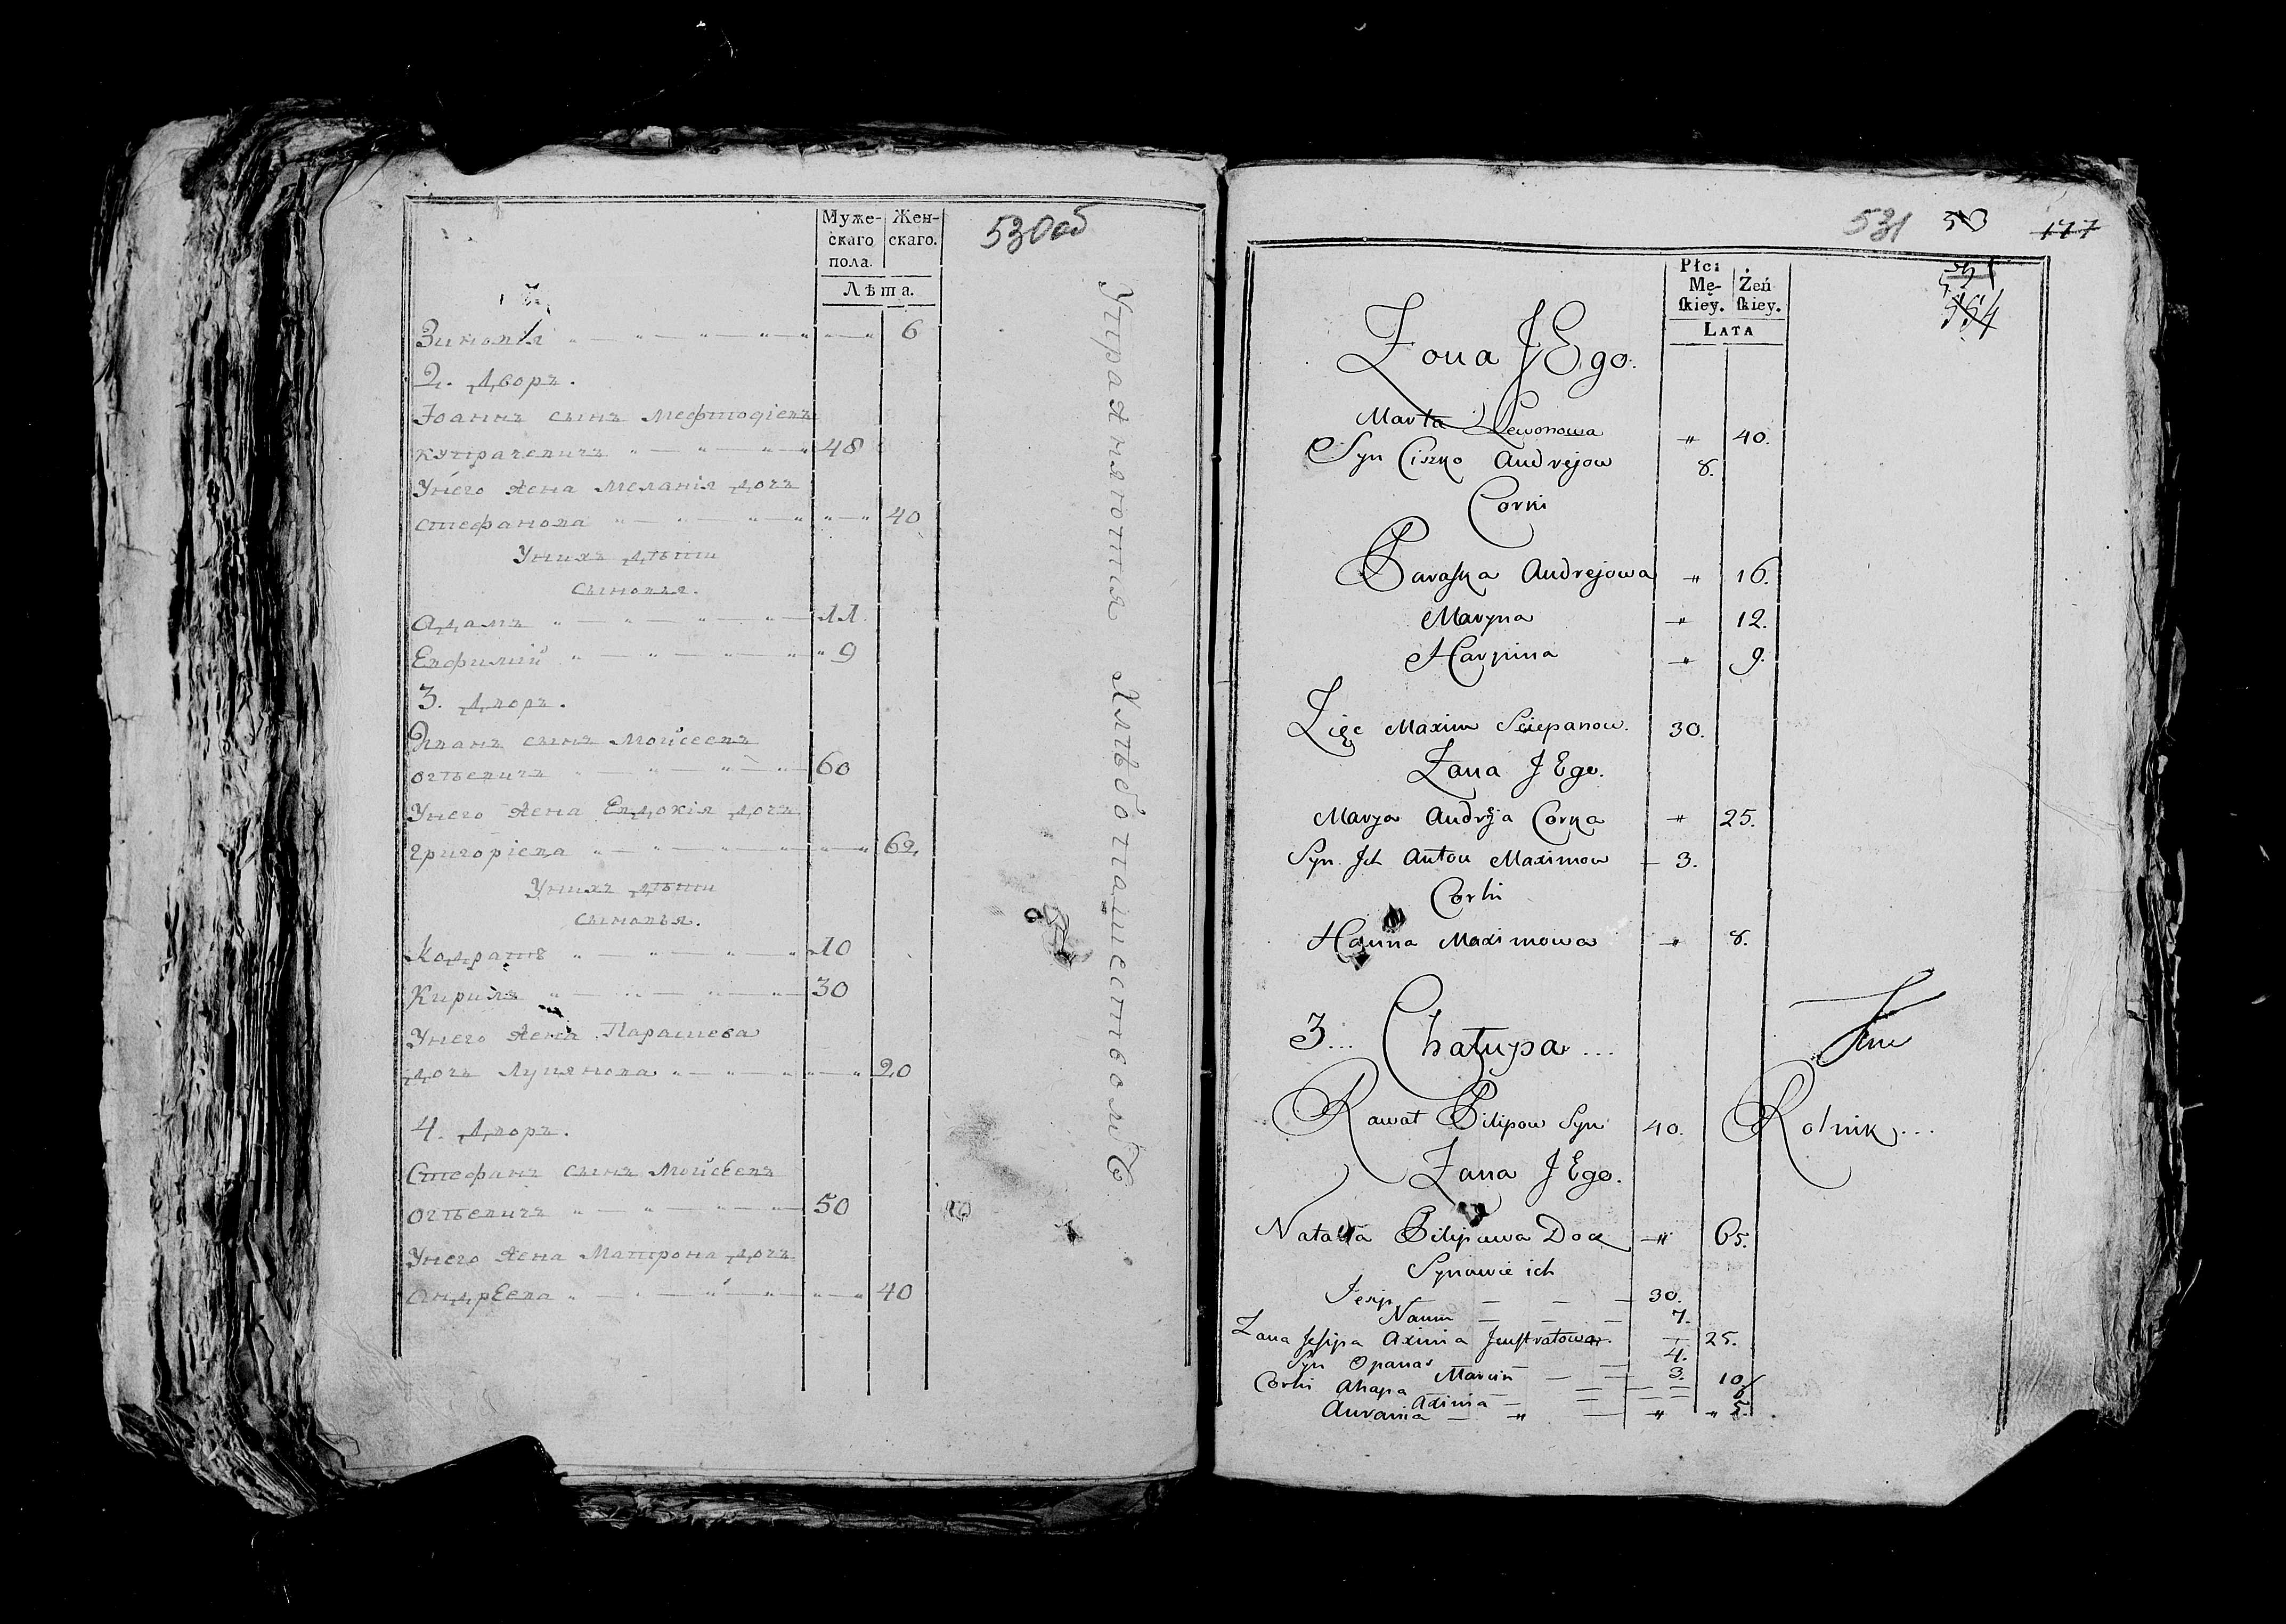 Муже-
скаго
пола.
Жен-
скаго.
Лѣта.
530об
Зиновія " — " — " — " — " — " 6
2. Дворъ.
Іоаннъ сынъ Мефтодіевъ
кутрачевичъ " — " — " — " 48
Унего жена Меланія дочъ
стефанова " — " — " — " — " 40
Унихъ дѣти
сыновья.
Адамъ " — " — " — " — 11
Евфимій " — " — " — " — " 9
3. Дворъ.
Иванъ сынъ Мойсеевъ
огѣевичъ " — " — " — " — 60
Унего жена Евдокія дочъ
григоріева " — " — " — " — " — " 62
Унихъ дѣти
сыновья.
Кодратъ " — " — " — " — 10
Кирилъ " — " — " — " — 30
Унего жена Парасцева
дочъ Лукянова " — " — " — " 20
4. Дворъ.
Стефанъ сынъ Мойсѣевъ
огѣевичъ " — " — " — " — 50
Унего жена Матрона дочъ
Андреева " — " — " — " — " 40
Упражняютця Хлѣбопашествомъ
531
177
Płci
Mę-
ſkiey.
Żeń
ſkiey.
LATA
554
Zona JEgo.
Marta Lewonowa " 40.
Syn Ciszko Andrejow 8.
Corki
Paraſka Andrejowa " 16.
Maryna " 12.
Harpina " 9.
Zięc Maxim Sciepanow. 30.
Zana JEgo.
Marya Andrzja Corka " 25.
Syn Jch Anton Maximow — 3.
Corki
Hanna Maximowa " 8.
3... Chałupa...
Kawat Pilipow Syn 40. Rolnik...
Zana JEgo.
Natalia Pilipawa Doc " 65.
Synowie ich
Jesip — — — 30.
Naum — — — 7.
Zana Jeſipa Axinia Jewſtratowa. — 25.
Syn Opanas — — 4.
Marcin — — 3.
Corki Ahapa — — — 10
Axinia — — — 8
Auvania — " — " " 5.